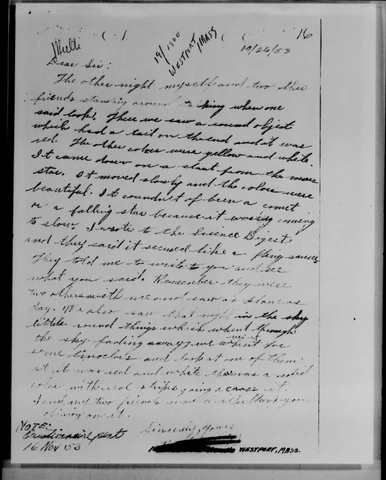 16
19/1300
WESTPORT/MASS
10/26/53
Dear Sir:
The other night myself and two other
friends standing around talking when one
said look. There we saw a round object
which had a tail on the end and it was
red. The other colors were yellow and white.
It came down on a slant from the
star. It moved slowly and the colors were
beautiful. It couldn't of been a comet
or a falling star because it was coming
to slow. I wrote to the Science Digest
and they said it seemed like a flying saucer.
They told me to write to you and see
what you said. Remember they were
two others with me and saw as plain as
day. We also saw that night in the sky
little round things which went through
the sky fading away, we went for
some binoculars and look at one of them
it was red and white
color with red strips going across it.
and my two friends
NOTE:
Questionnaire sent
16 Nov 53
Sincerely Yours
WESTPORT, MASS.